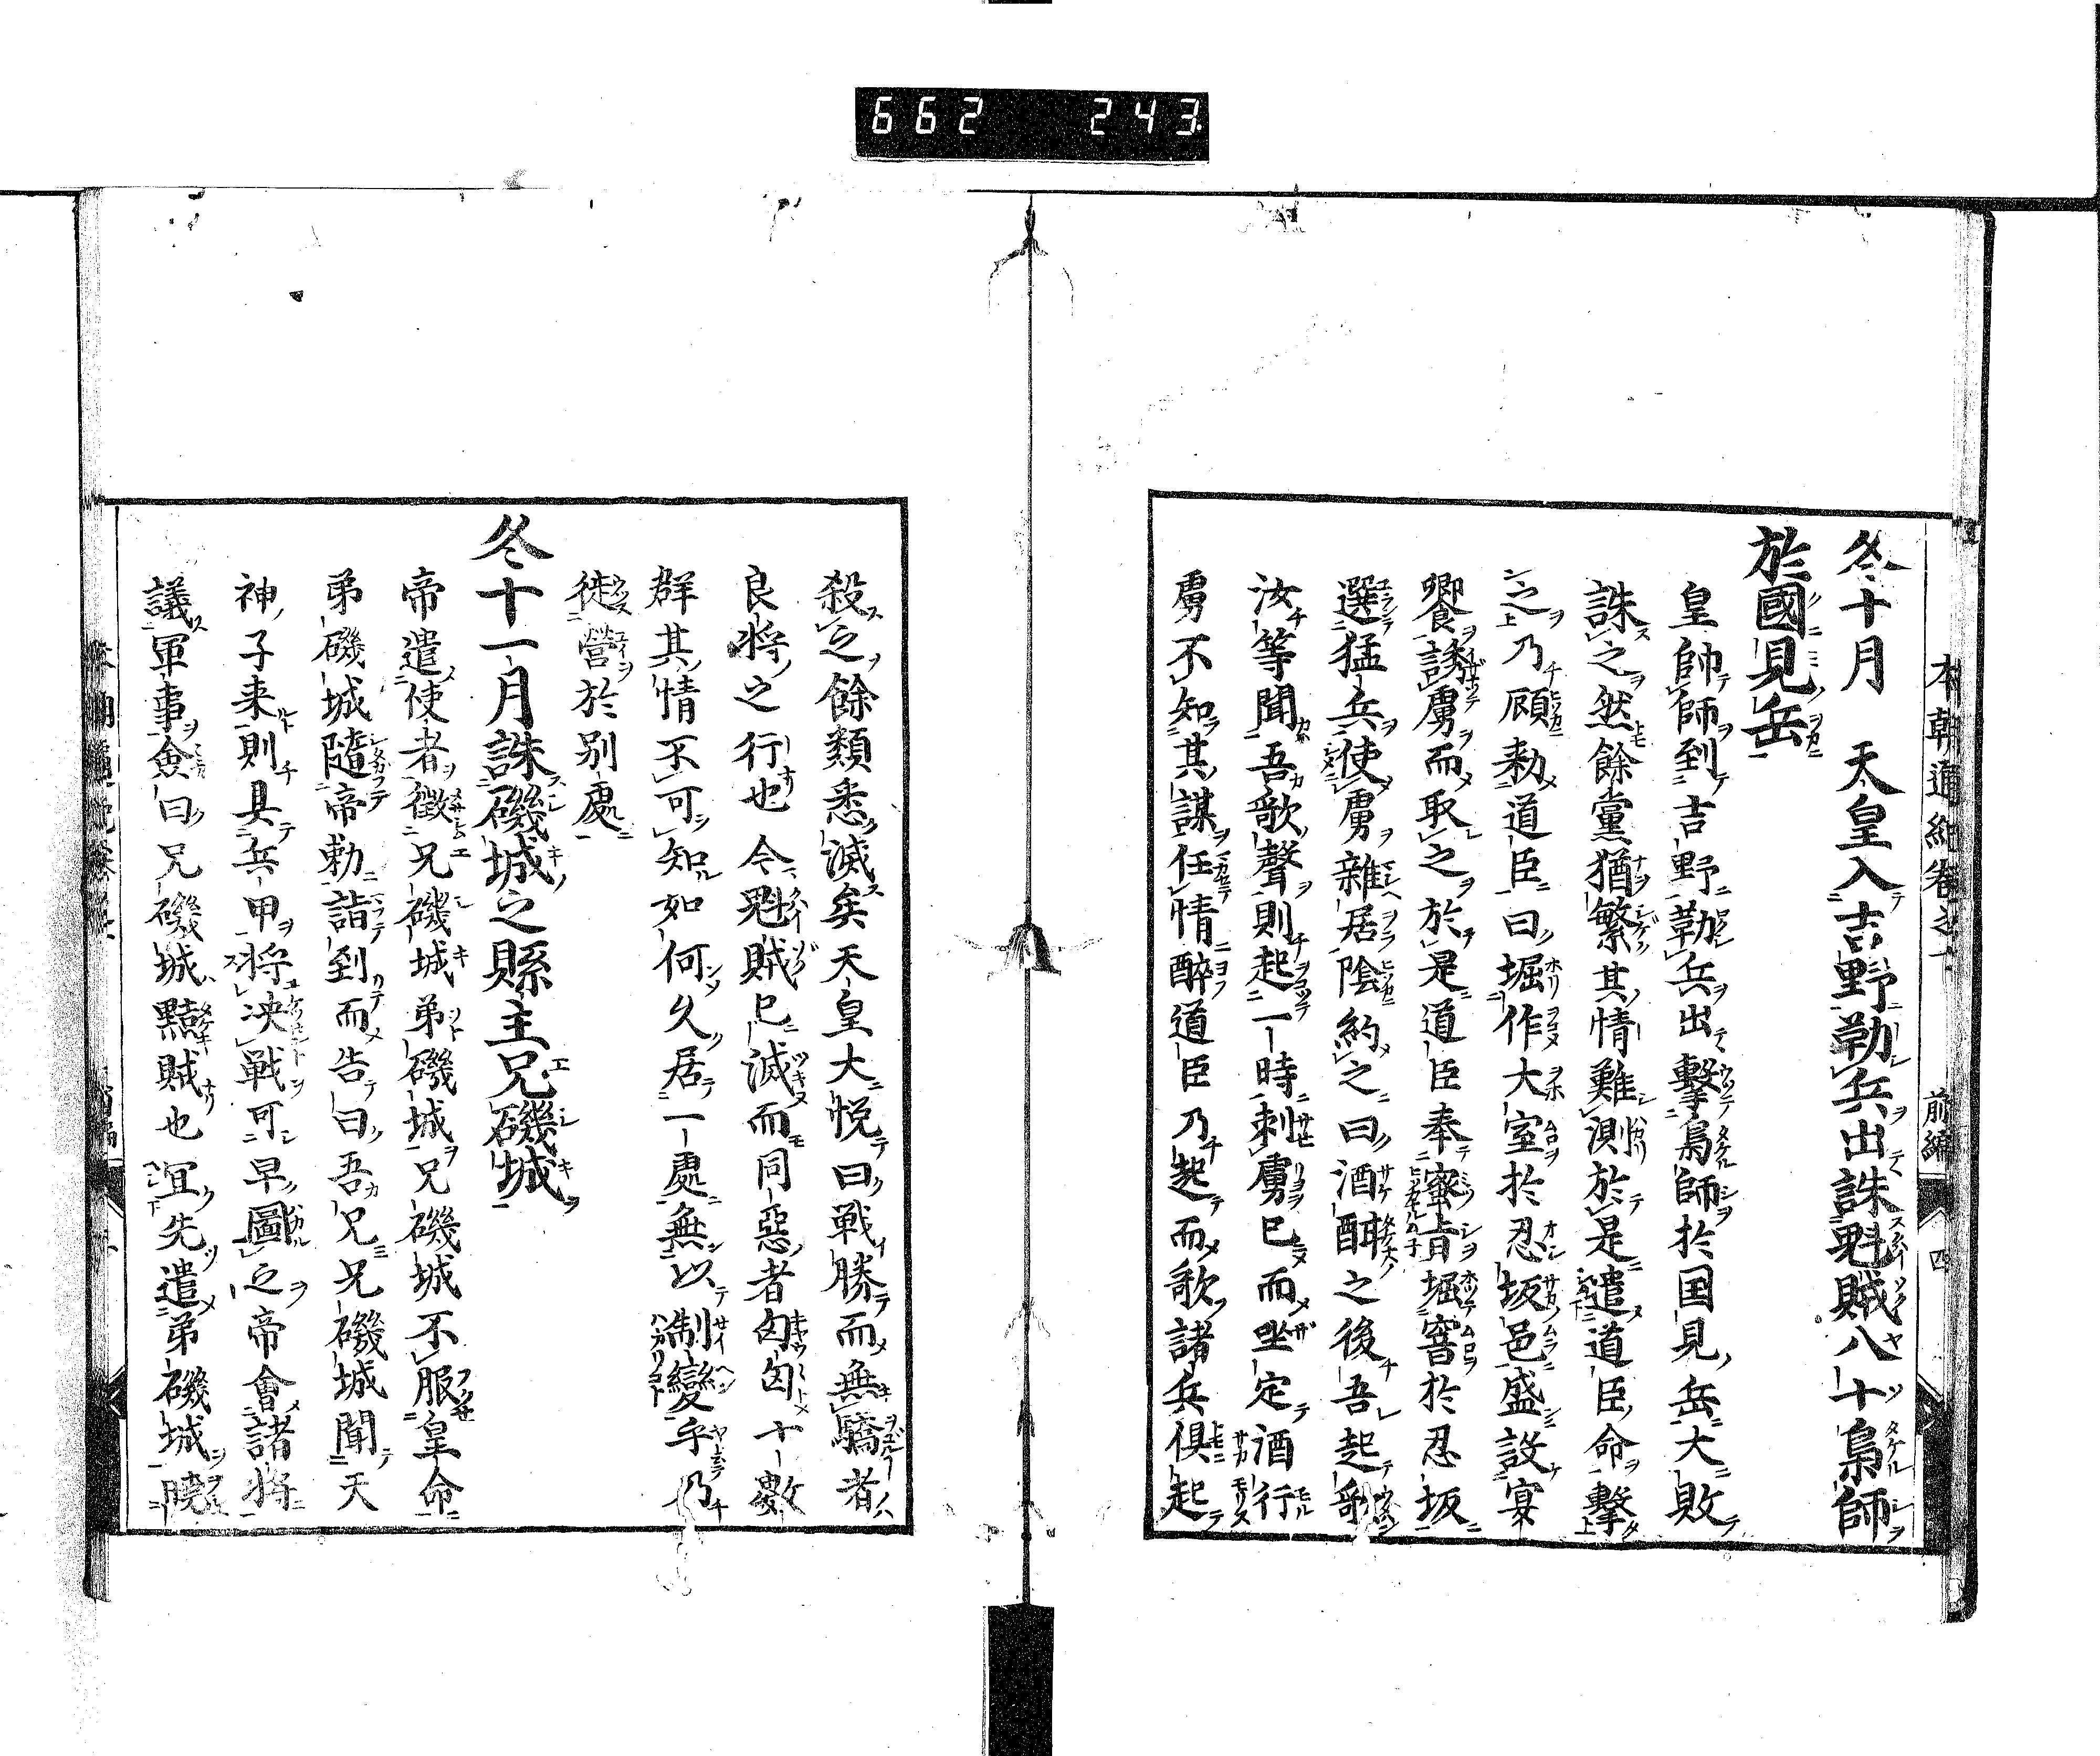 662 243
本朝通紀卷之一 前編 四
冬十月 天皇入吉野勒兵出誅魁賊八十梟師
於國見岳
皇帥師到吉野勒兵出擊梟師於国見岳大敗
誅之然餘黨猶繁其情難測於是遣道臣命擊
之乃顧勑道臣曰堀作大室於忍坂邑盛設宴
饗誘虜而取之於是道臣奉密旨堀窨於忍坂
選猛兵使虜雜居陰約之曰酒酣之後吾起歌
汝等聞吾歌聲則起一時刺虜已而坐定酒行
虜不知其謀任情醉道臣乃起而歌諸兵俱起
殺之餘類悉滅矣天皇大悦曰戦勝而無驕者
良將之行也今魁賊已滅而同惡者匈匈十數
群其情不可知如何久居一處無以制變乎乃
徙營於別處
冬十一月誅磯城之縣主兄磯城
帝遣使者徵兄磯城弟磯城兄磯城不服皇命
弟磯城隨帝勅詣到而告曰吾兄兄磯城聞天
神子来則具兵甲將决戰可早圖之帝會諸將
議軍事僉曰兄磯城黠賊也宜先遣弟磯城曉